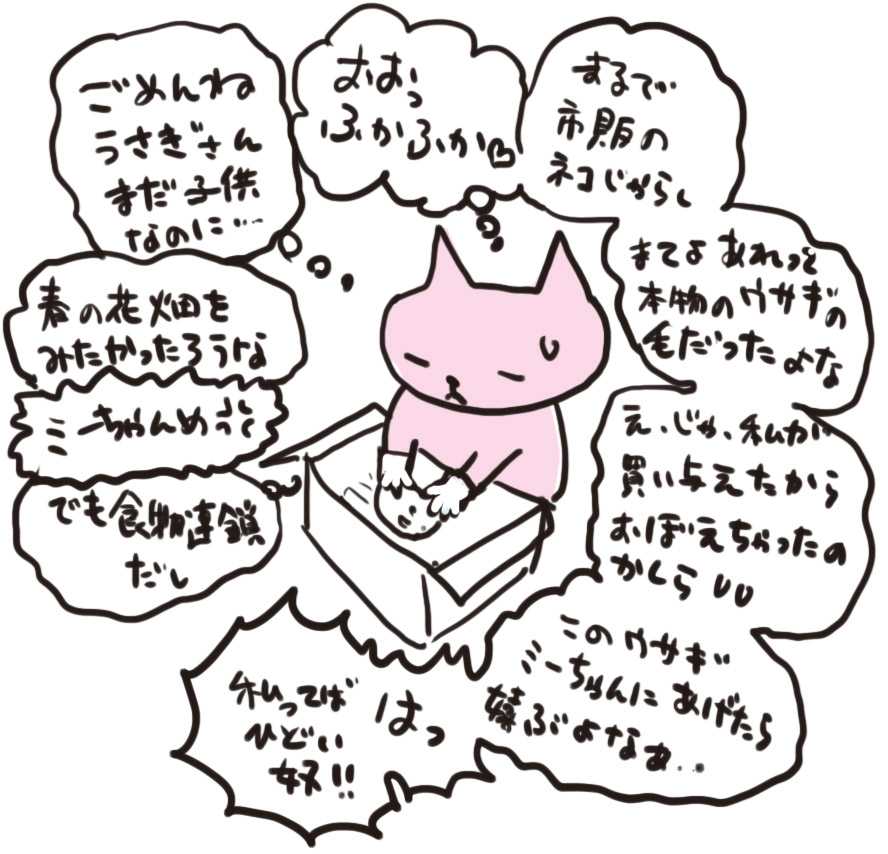 ごめんね
うさぎさん
まだ子供
なのに…
春の花畑を
みたかったろうな
ミーちゃんめっ
でも食物連鎖
だし
おおっ
ふかふか♡
まるで
市販の
ネコじゃらし
まてよ あれって
本物のウサギの
毛だったよな
え、じゃ、私が
買い与えたから
おぼえちゃったの
かしら
このウサギ
ミーちゃんにあげたら
喜ぶよなぁ…
はっ
私ってば
ひどい
奴!!